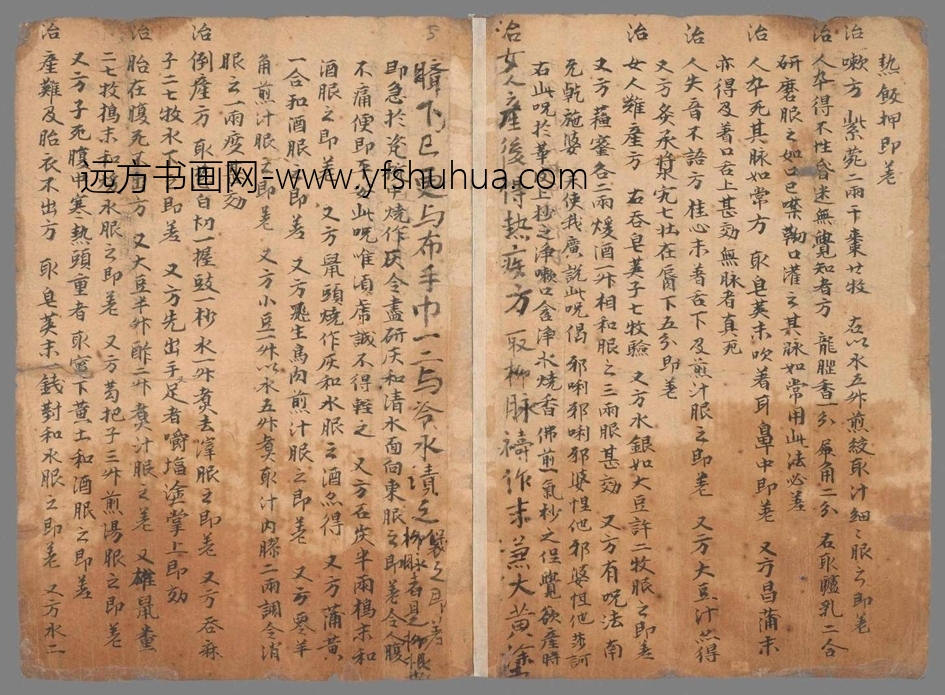 熱飯押即差
治嗽方 紫菀二兩干棗廿牧 右以水五升煎絞取汁細細眼之即差
治人卒得不性昏迷無覺知者方 龍腦香一分犀角二分 右取驢乳二合
研磨眼之如口已噤勒口灌之其脉如常用此法必差
治人卒死其脉如常方 取皂莢末吹著耳鼻中即差 又方昌蒲末
亦得及著口舌上甚効無脉者真死
治人失音不語方 桂心末著舌下及煎汁眼之即差 又方大豆汁亦得
又方灸承漿穴七壮在脣下五分即差
治女人難産方 右吞皂莢子七牧驗 又方水銀如大豆許二牧眼之即差
又方 各二兩煖酒一升相和眼之三兩眼甚効 又方有呪法 南
无乾施婆 使我廣説此呪偈 邪唎邪唎邪婆怛他邪婆怛他莎訶
右此呪於革 上抄之淨嗽口含淨水燒香佛前一氣抄之促覺欲産時
治女人産後得熱疾方 取柳脉 作末兼大黄塗
臍下已 更与布手巾一二与冷水漬之
柳脉者是柳根
即急於瓷 中燒作灰令盡研灰和清水面向東眼之即差令人腹
不痛便即 此呪唯須虔誠不得輕之 又方石灰半兩搗末和
酒眼之即差 又方鼠頭燒作灰和水眼之酒亦得 又方蒲黄
一合和酒眼 即差 又方 生鳥肉煎汁眼之即差 又方零羊
角煎汁眼 即差 又方小豆一升以水五升煑取汁内膠二兩調令消
眼之一兩度 効
治倒産方 取 白 一握豉一抄水一升煑去滓眼之即差 又方吞麻
子二七牧水下 即差 又方先出手足者嚼塩塗掌上即効
治胎在腹死 方 又大豆半升酢二升煑汁眼之差 又雄鼠糞
二七牧搗末和 水眼之即差 又方葛把子三升煎湯眼之即差
又方子死腹中寒熱頭重者取竈下黄土和酒眼之即差
治産難及胎衣不出方 取皂莢末 錢對和水眼之即差 又方水二
远方书画网-www.yfshuhua.com